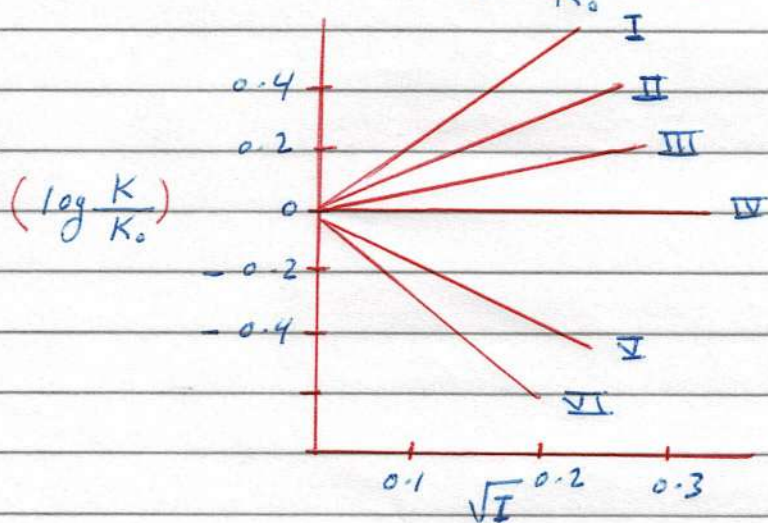 K₀
I
0.4
II
0.2
III
(log K/K₀)
0
IV
- 0.2
- 0.4
V
VI
0.1 √I 0.2 0.3